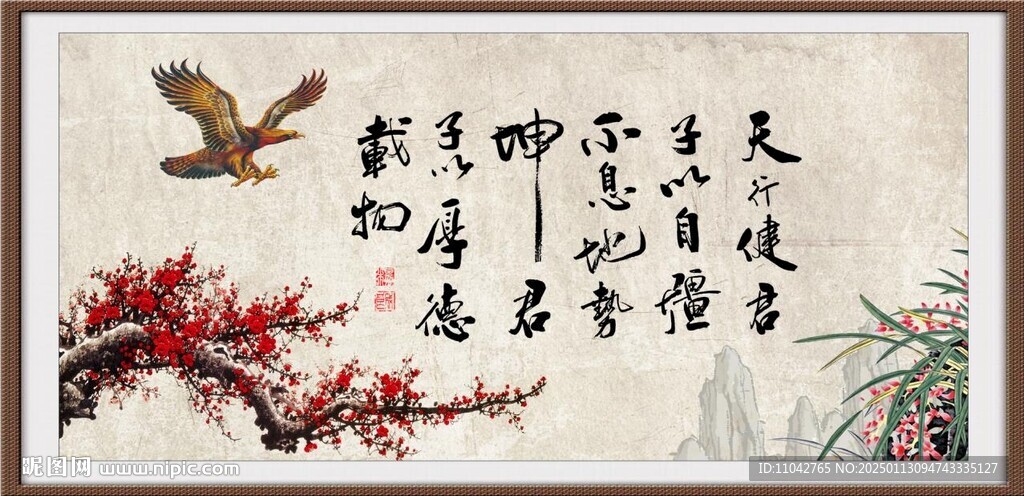 天行健君
子以自彊
不息地勢
坤君
子以厚德
載物
昵图网 www.nipic.com
ID:11042765 NO:20250113094743335127